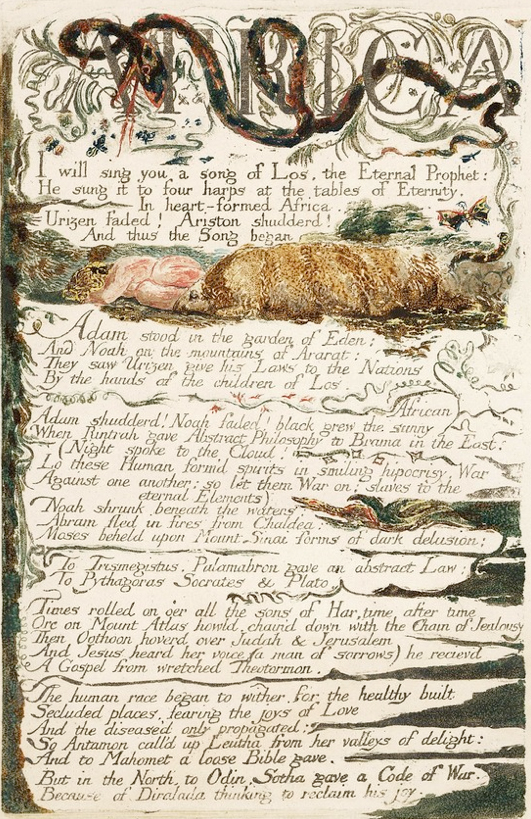 AFRICA
I will sing you a song of Los, the Eternal Prophet:
He sung it to four harps at the tables of Eternity.
In heart-formed Africa
Urizen faded! Ariston shudderd!
And thus the Song began
Adam stood in the garden of Eden:
And Noah on the mountains of Ararat:
They saw Urizen give his Laws to the Nations
By the hands of the children of Los.
African
Adam shudderd! Noah faded! black grew the sunny
When Rintrah gave Abstract Philosophy to Brama in the East:
(Night spoke to the Cloud!
Lo these Human form'd spirits in smiling hipocrisy. War
Against one another; so let them War on; slaves to the
eternal Elements)
Noah shrunk beneath the waters;
Abram fled in fires from Chaldea;
Moses beheld upon Mount Sinai forms of dark delusion:
To Trismegistus. Palamabron gave an abstract Law:
To Pythagoras Socrates & Plato.
Times rolled on o'er all the sons of Har, time after time
Orc on Mount Atlas howld, chain'd down with the Chain of Jealousy
Then Oothoon hoverd over Judah & Jerusalem
And Jesus heard her voice (a man of sorrows) he recievd
A Gospel from wretched Theotormon.
The human race began to wither, for the healthy built
Secluded places, fearing the joys of Love
And the diseased only propagated:
So Antamon call'd up Leutha from her valleys of delight:
And to Mahomet a loose Bible gave.
But in the North, to Odin, Sotha gave a Code of War.
Because of Diralada thinking to reclaim his joy.